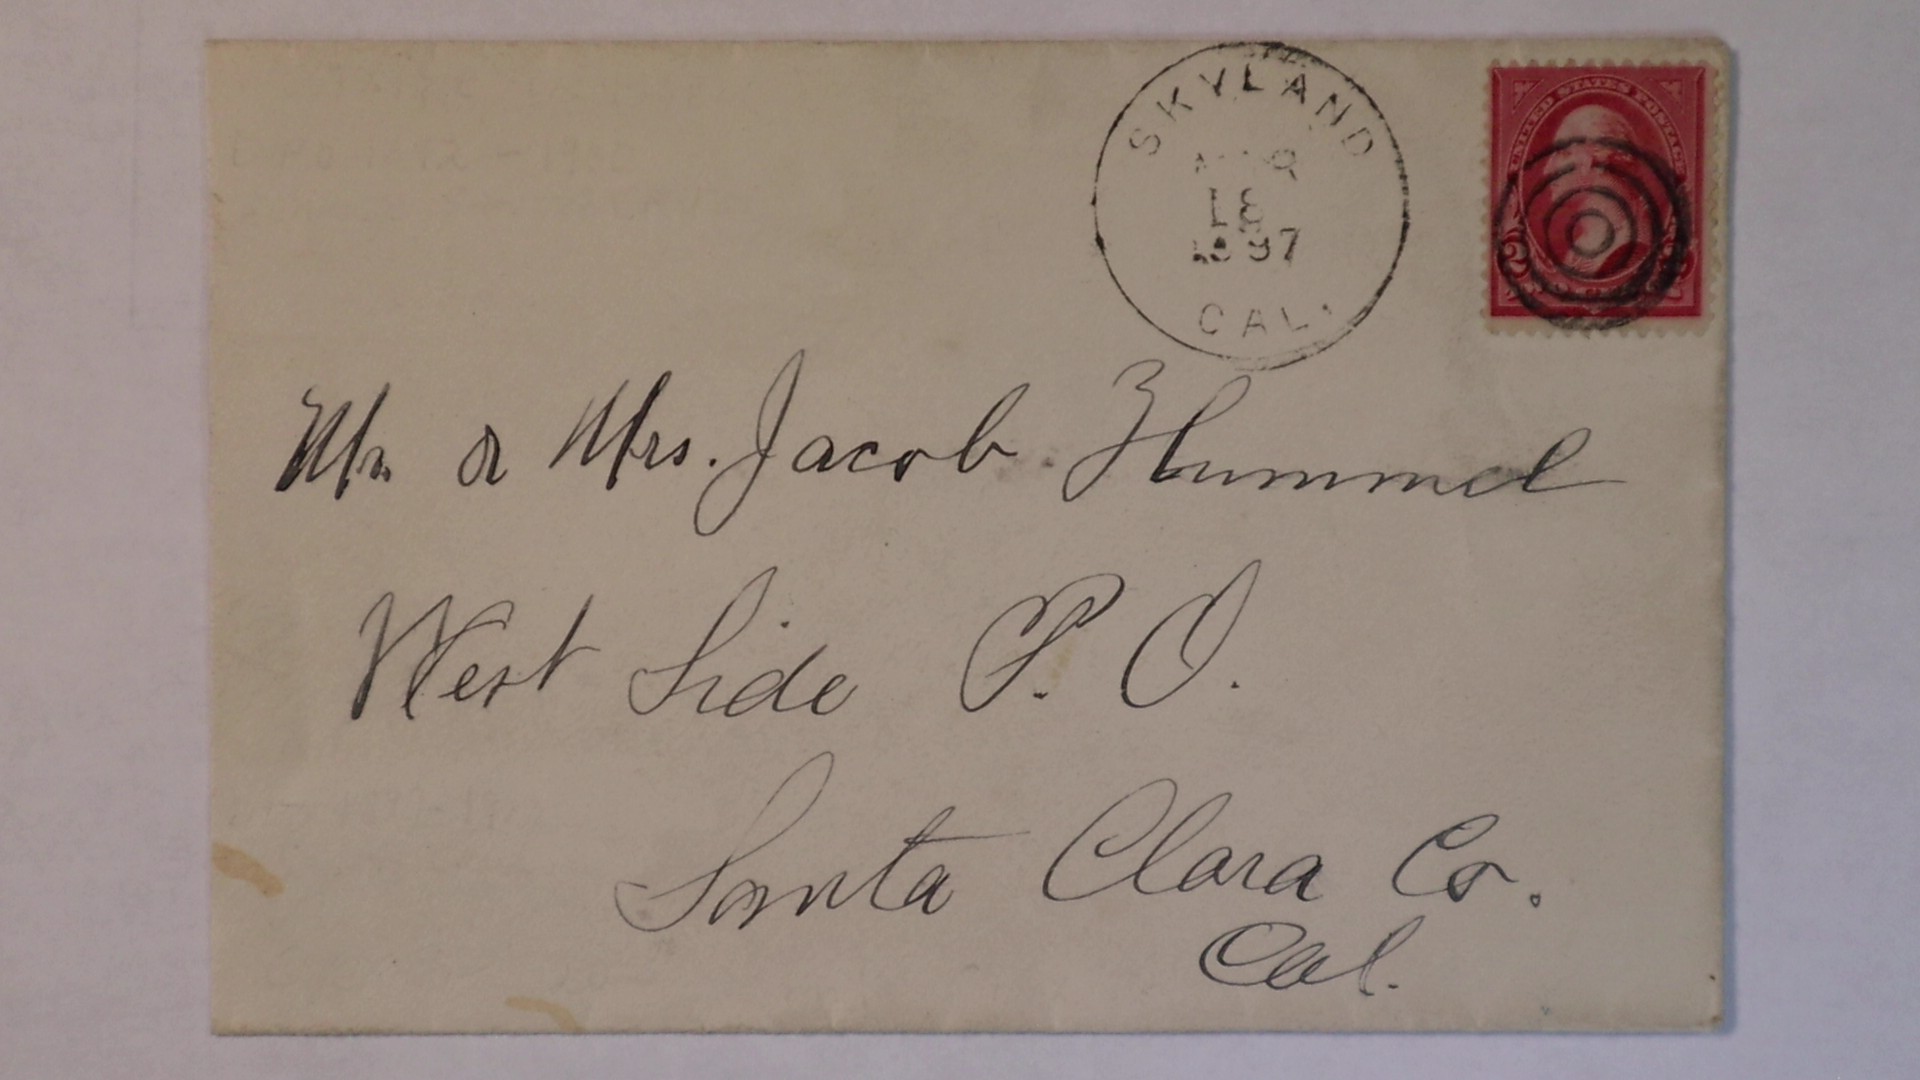 SKYLAND
18
1897
CAL.
UNITED STATES POSTAGE
2
Mr. & Mrs. Jacob Hummel
West Side P. O.
Santa Clara Co.
Cal.